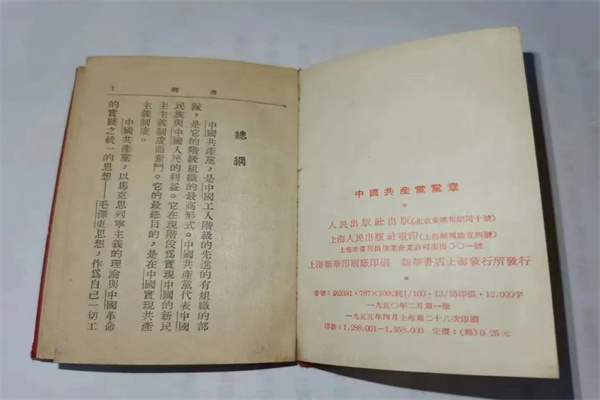 總綱
1
總綱
中國共產黨，是中國工人階級的先進的有組織的部
隊，是它的階級組織的最高形式。中國共產黨代表中國
民族與中國人民的利益。它在現階段爲實現中國的新民
主主義制度而奮鬥。它的最終目的，是在中國實現共產
主義制度。
中國共產黨，以馬克思列寧主義的理論與中國革命
的實踐之統一的思想——毛澤東思想，作爲自己一切工
中國共產黨黨章
人民出版社出版(北京東總布胡同十號)
上海人民出版社重印(上海紹興路五四號)
上海市書刊出版業營業許可證出〇〇一號
上海新華印刷廠印刷 新華書店上海發行所發行
書號：787×1092耗1/100·13/25印張·12,000字
一九五〇年二月第一版
一九五五年四月上海第二十八次印刷
印數：1,288,001—1,358,000 定價：(精)0.25元